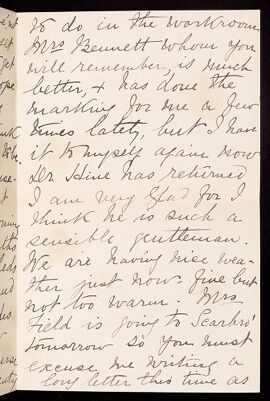 to do in the workroom
Mrs Bennett whom you
will remember, is much
better, & has done the
marking for me a few
times lately, but I have
it to myself again now
Dr Hine has returned
I am very glad for I
think he is such a
sensible gentleman.
We are having nise wea-
ther just now. fine but
not too warm. Mrs
Field is going to Scarbro'
tomorrow so you must
excuse me writing a
long letter this time as